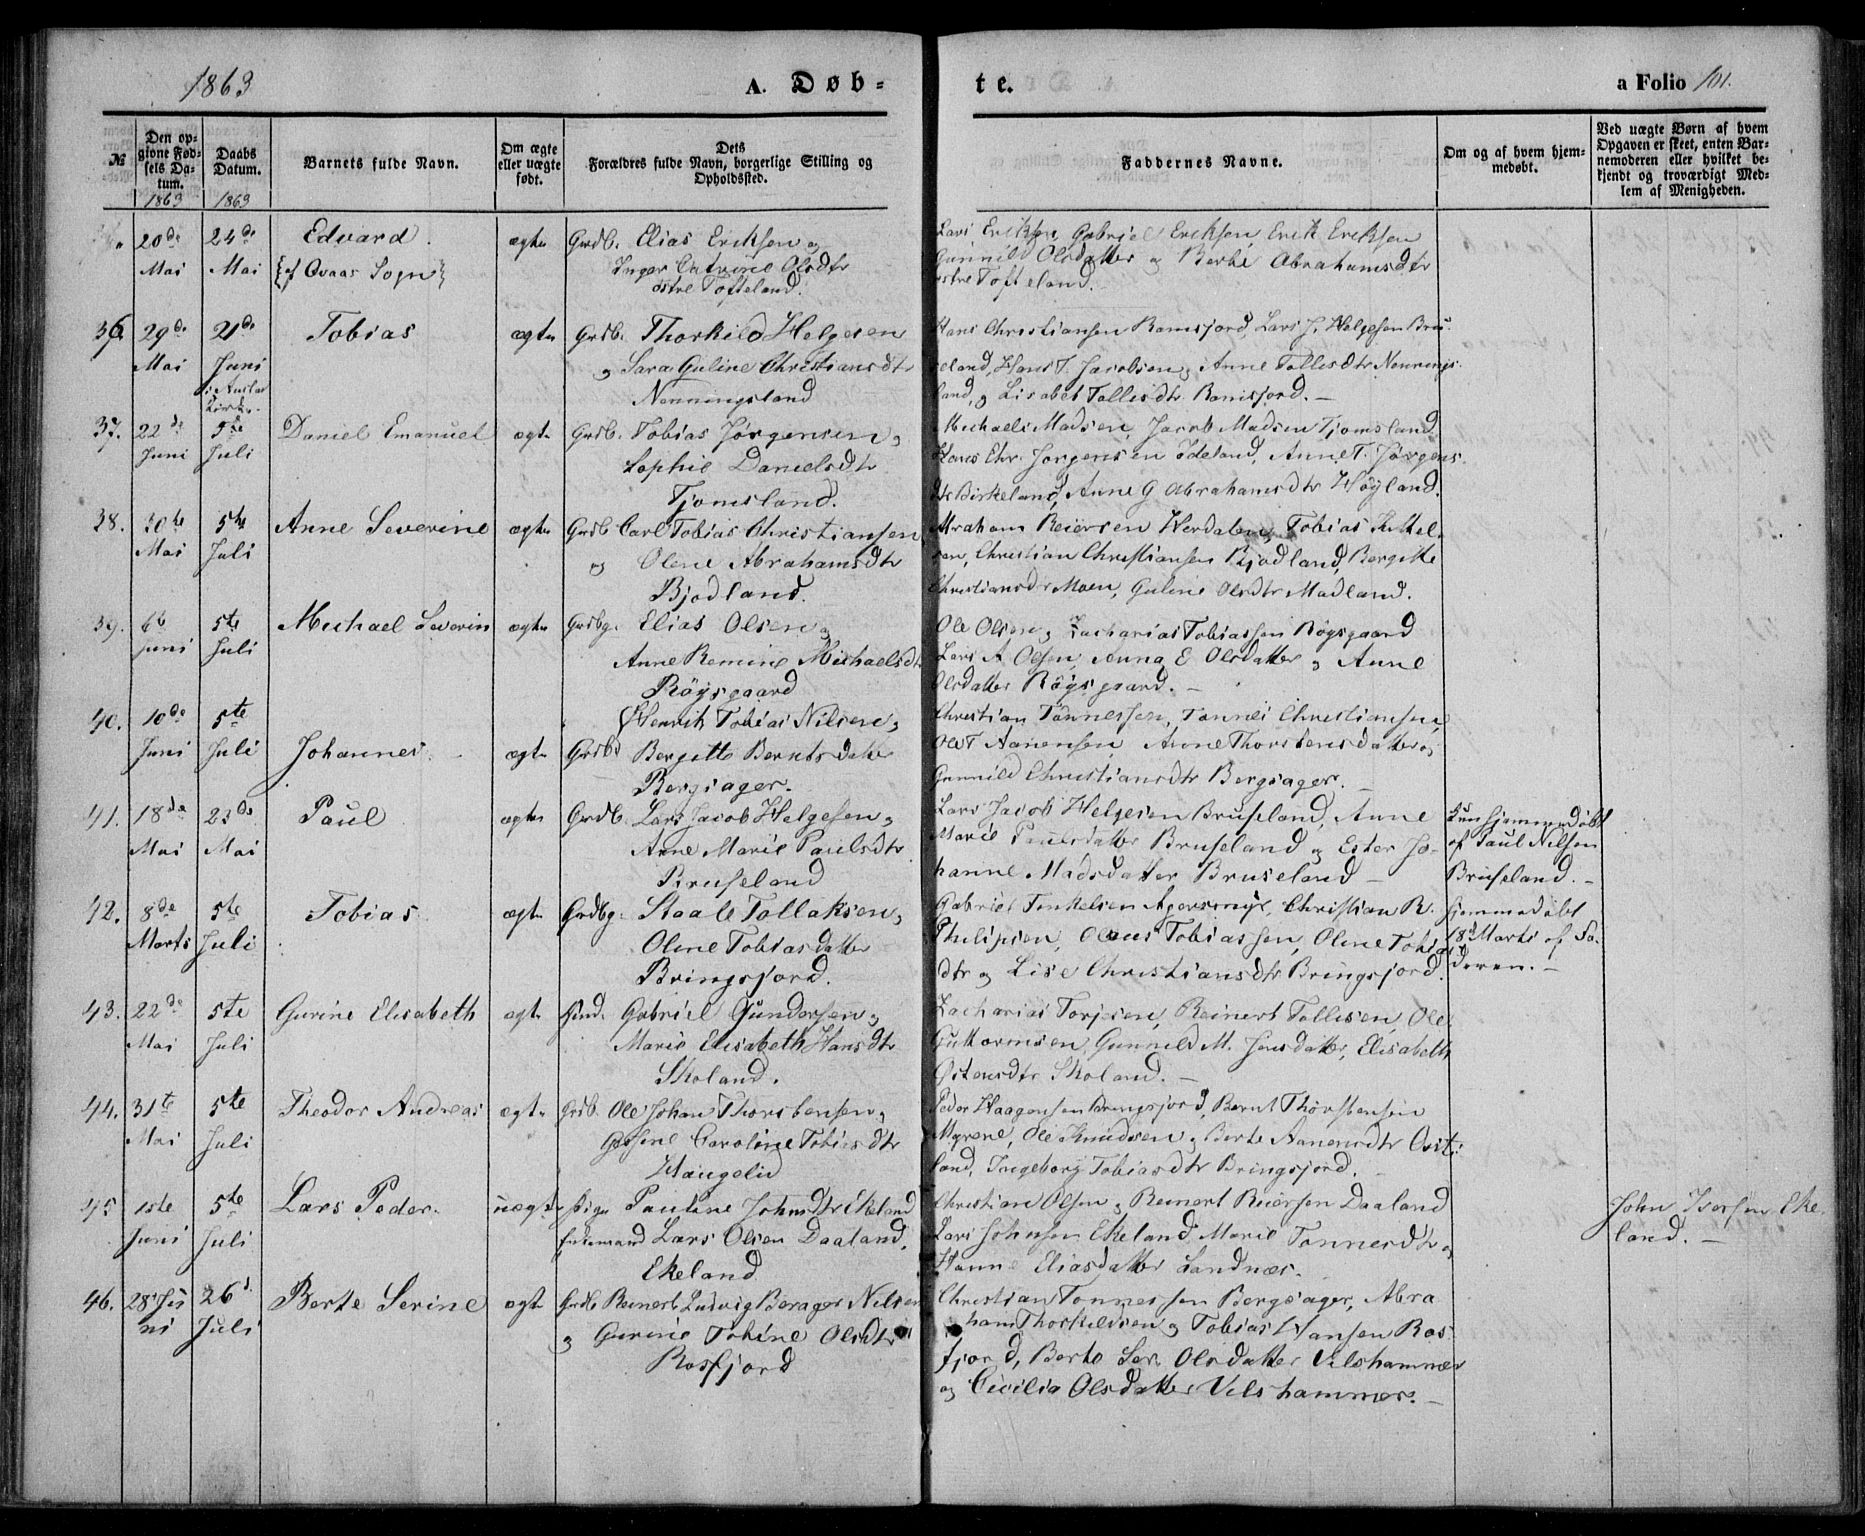 1863 A. Døb- te. a Folio 101.
№
Den op-
givne Fød-
sels Da-
tum.
1863
Daabs
Datum.
1863
Barnets fulde Navn.
Om ægte
eller uægte
født.
Dets
Forældres fulde Navn, borgerlige Stilling og
Opholdssted.
Faddernes Navne.
Om og af hvem hjem-
medøbt.
Ved uægte Børn af hvem
Opgaven er skeet, enten Bar-
nemoderen eller hvilket be-
kjendt og troværdigt Med-
lem af Menigheden.
" 20de 24de Edvard. ægte Grdb. Elias Eriksen og
Mai Mai {af Qvaas Sogn} Inger Catrine Olsdtr
østre Tofteland.
Lars Eriksen, Gabriel Eriksen, Erik Eriksen
Gunnild Olsdatter og Berte Abrahamsdtr
østre Tofteland.
36 29de 21de Tobias ægte Grdb. Thorkild Helgesen
Mai Juni og Sara Guline Christiansdtr
Kirke. Nenningsland
Hans Christiansen Ramsfjord, Lars J. Helgesen Bru-
seland, Hans T. Jacobsen, Anne Tollisdtr Nennings-
land, og Lisabet Tollisdtr Ramsfjord. —
37. 22de 5te Daniel Emanuel ægte Grdb. Tobias Jørgensen og
Juni Juli Sophie Danielsdtr
Tjomsland.
Michaeli Madsen, Jacob Madsen Tjomsland
Hans Chr. Jørgensen Ødeland, Anne T. Jørgens-
dtr Birkeland, Anne G Abrahamsdtr Høyland.
38. 30te 5te Anne Severine ægte Grdb Carl Tobias Christiansen
Mai Juli og Olene Abrahamsdtr
Bjodland.
Abraham Reiersen Herdalen, Tobias Kittel-
sen, Christian Christiansen Bjodland, Bergitte
Christiansdtr Moen, Guline Olsdtr Madland.
39. 6te 5te Michael Severin ægte Grdbg. Elias Olsen og
juni Juli Anne Remine Michaelsdtr
Røysgaard
Ole Olsen og Zacharias Tobiassen Røysgaard
Lars A Olsen, Anna E Olsdatter og Anne
Olsdatter Røysgaard. —
40. 10de 5te Henrik Tobias Nilsen og
Juni Juli Johannes. ægte Grdb Bergitte Berntsdatter
Bergsager.
Christian Tønnessen, Tønnes Christiansen,
Ole T Aanensen, Anne Thorstensdatter og
Gunnild Christiansdtr Bergsager. —
41. 18de 23de Paul ægte Grdb. Lars Jacob Helgesen og
Mai Mai Anne Marie Paulsdtr
Bruseland
Lars Jacob Helgesen Bruseland, Anne
Marie Paulsdatter Bruseland og Ester Jo-
hanne Madsdatter Bruseland —
Kun hjemmedøbt
af Paul Nilsen
Bruseland. —
42. 8de 5te Tobias. ægte Grdbg. Staale Tollaksen og
Marts Juli Olene Tobiasdatter
Bringsjord.
Gabriel Terkelsen Agersmyr, Christian R.
Philipsen, Olaus Tobiassen, Olene Tobias
dtr og Lise Christiansdtr Bringsjord.
hjemmedøbt
18d Marts af Fa-
deren. —
43. 22de 5te Gurine Elisabeth ægte Gabriel Gundersen og
Mai Juli Marie Elisabeth Hansdtr
Skoland.
Zacharias Torjesen, Reinert Tollisen, Ole
Guttormsen, Gunnild M. Jensdatter, Elisabeth
Østensdtr Skoland. —
44. 31te 5te Theodor Andreas ægte Grdb. Ole Johan Thorstensen og
Mai Juli Gusine Caroline Tobiasdtr
Haugelid
Peder Haagensen Bringsjord, Bernt Thorstensen
Myrene, Ole Knudsen, Berte Aanensdtr Opst-
land, Ingeborg Tobiasdtr Bringsjord. —
45 1ste 5te Lars Peder. uægte Pige Pauline Johnsdtr Ekeland
Juni Juli Enkemand Lars Olsen Daaland,
Ekeland
Christian Olsen og Reinert Reiersen Daaland
Lars Johnsen Ekeland, Marie Tønnesdtr og
Hanne Eliasdatter Sandnæs.
John Iversen Eke-
land. —
46. 28 Ju 26d Berte Serine ægte Grdb Reinert Ludvig Berager Nilsen
ni Juli og Gurine Tobine Olsdtr
Rosfjord
Christian Tønnessen Bergsager, Abra
ham Thorkildsen og Tobias Hansen Ros-
fjord, Berte Ser. Olsdatter Vilshammer
og Cicilia Olsdatter Vilshammer. —